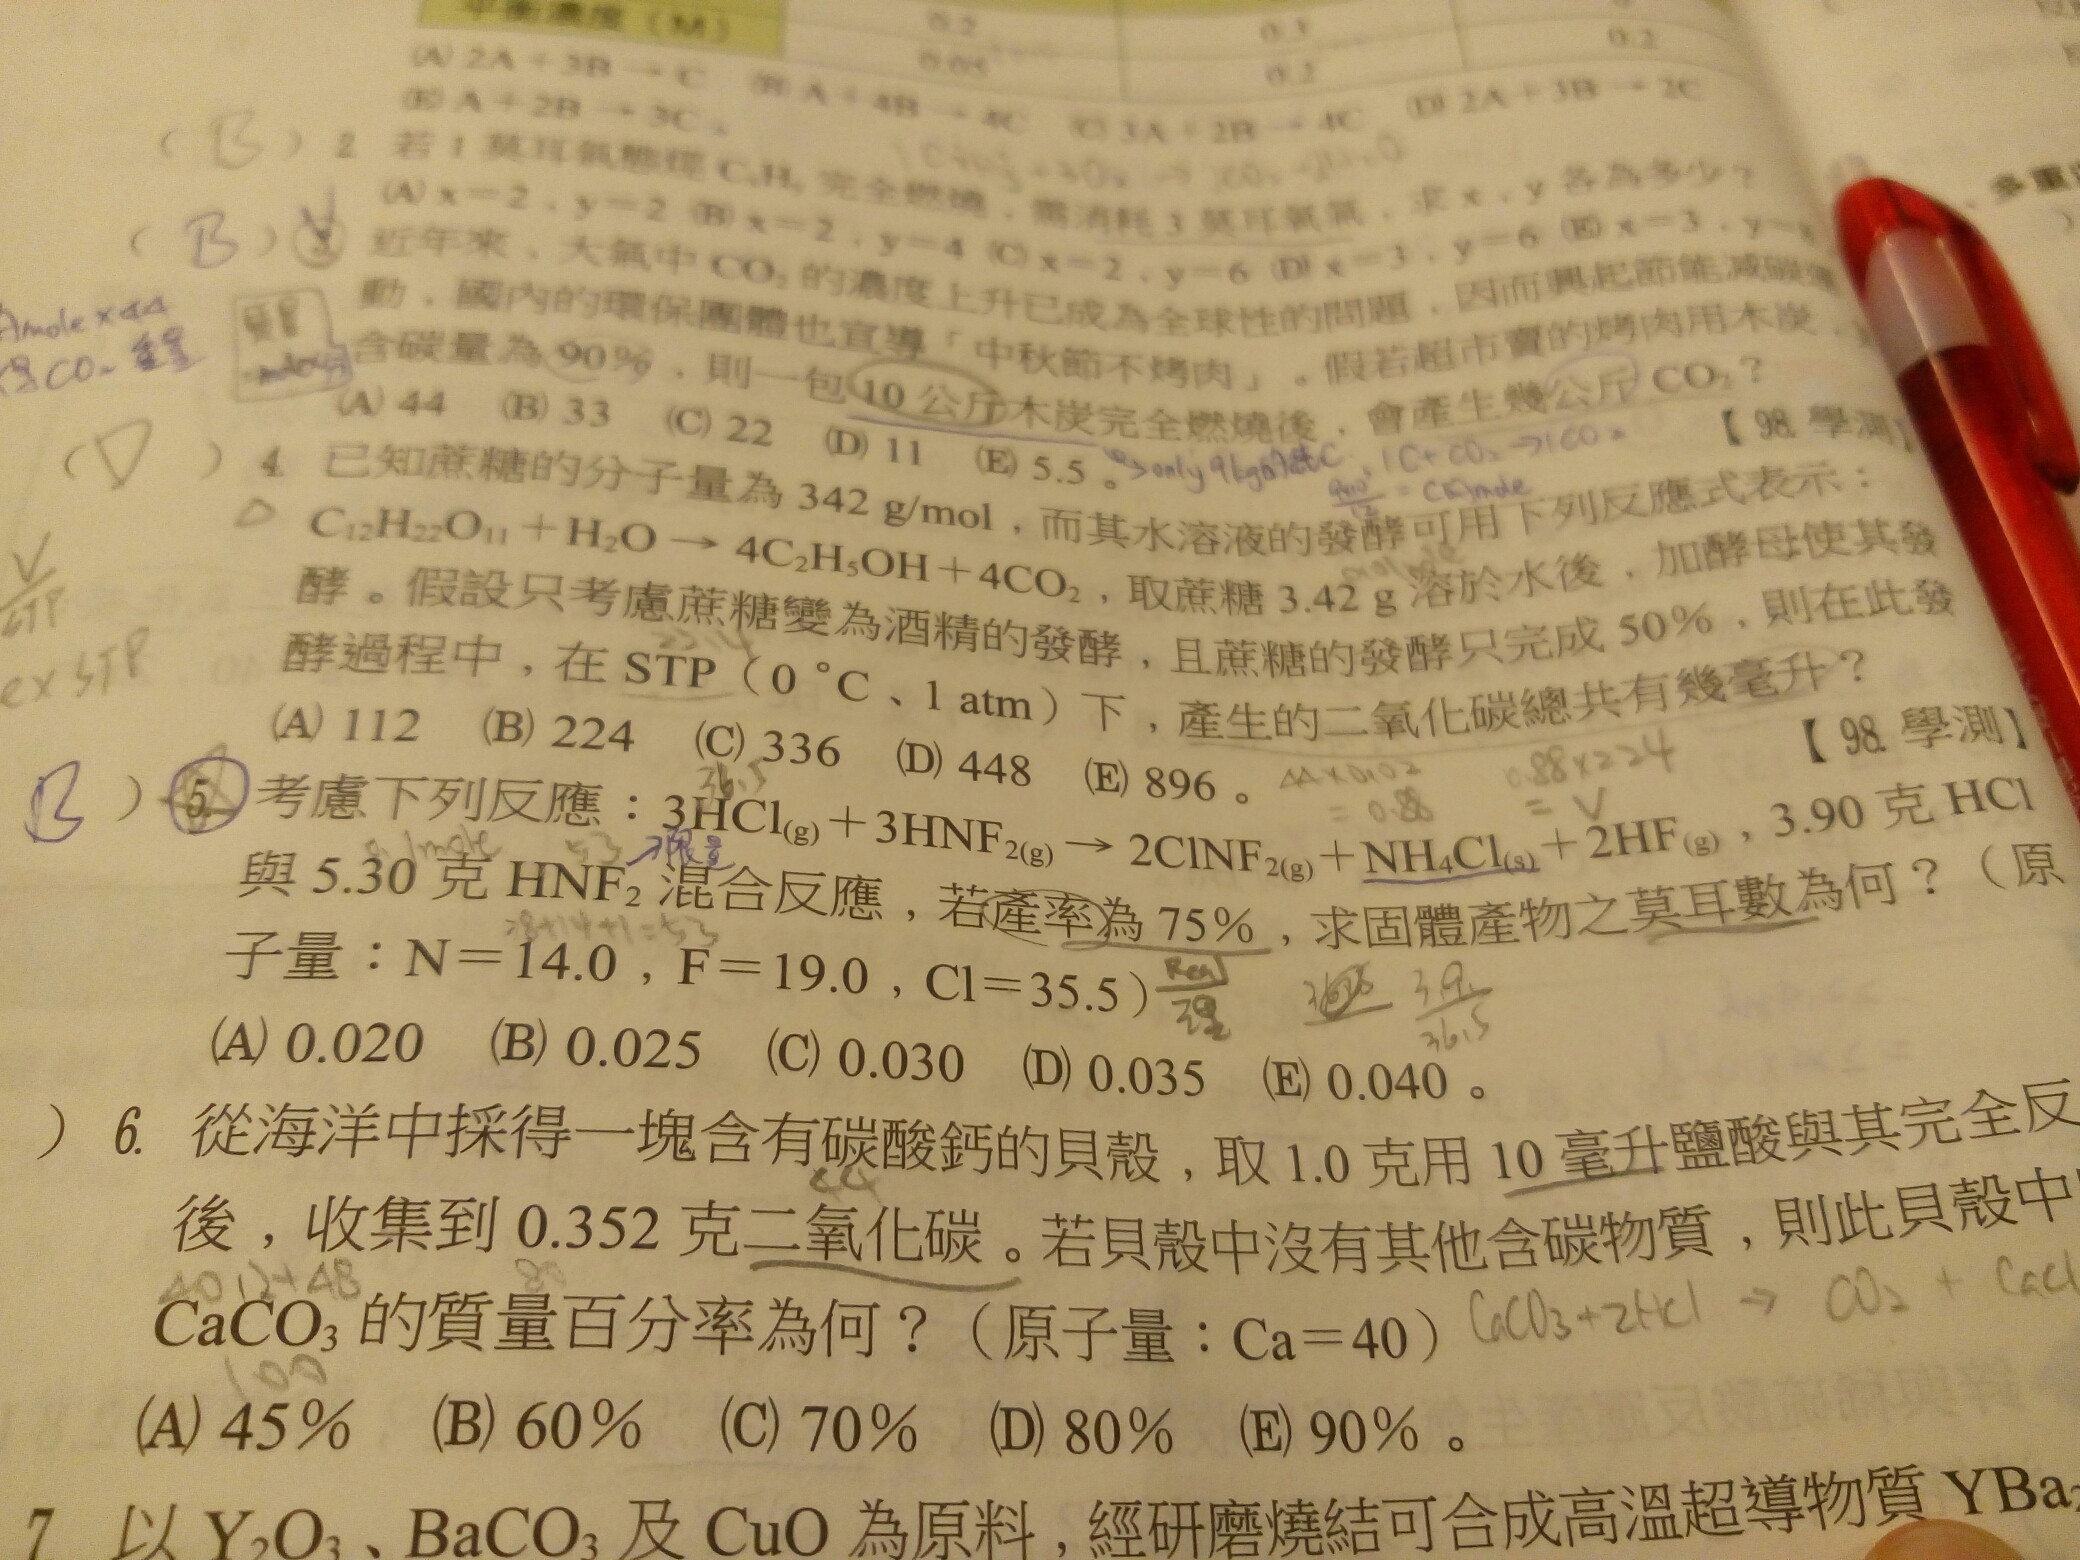 平衡濃度（M） 0.2 0.1 0
0.05 0.2 0.2
(A) 2A＋3B → C (B) A＋4B → 4C (C) 3A＋2B → 4C (D) 2A＋3B → 2C
(E) A＋2B → 3C。
( B ) 2. 若 1 莫耳氣態烴 CxHy 完全燃燒，需消耗 3 莫耳氧氣，求 x、y 各為多少？
(A) x＝2，y＝2 (B) x＝2，y＝4 (C) x＝2，y＝6 (D) x＝3，y＝6 (E) x＝3，y＝
( B ) 3. 近年來，大氣中 CO₂ 的濃度上升已成為全球性的問題，因而興起節能減碳
動，國內的環保團體也宣導「中秋節不烤肉」。假若超市賣的烤肉用木炭，
含碳量為 90%，則一包 10 公斤木炭完全燃燒後，會產生幾公斤 CO₂？
(A) 44 (B) 33 (C) 22 (D) 11 (E) 5.5。 【98. 學測】
( D ) 4. 已知蔗糖的分子量為 342 g/mol，而其水溶液的發酵可用下列反應式表示：
C₁₂H₂₂O₁₁＋H₂O → 4C₂H₅OH＋4CO₂，取蔗糖 3.42 g 溶於水後，加酵母使其發
酵。假設只考慮蔗糖變為酒精的發酵，且蔗糖的發酵只完成 50%，則在此發
22.4
酵過程中，在 STP（0 °C、1 atm）下，產生的二氧化碳總共有幾毫升？
(A) 112 (B) 224 (C) 336 (D) 448 (E) 896。 【98. 學測】
44×0.02 = 0.88
0.88×22.4 = V
V/STP
ex STP
36.5
B ) 5. 考慮下列反應：3HCl(g)＋3HNF₂(g) → 2ClNF₂(g)＋NH₄Cl(s)＋2HF(g)，3.90 克 HCl
0.1mole 53 →限量
與 5.30 克 HNF₂ 混合反應，若產率為 75%，求固體產物之莫耳數為何？（原
子量：N＝14.0，F＝19.0，Cl＝35.5）
3.9/36.5
(A) 0.020 (B) 0.025 (C) 0.030 (D) 0.035 (E) 0.040。
) 6. 從海洋中採得一塊含有碳酸鈣的貝殼，取 1.0 克用 10 毫升鹽酸與其完全反
44
後，收集到 0.352 克二氧化碳。若貝殼中沒有其他含碳物質，則此貝殼中
40 12+48
CaCO₃ 的質量百分率為何？（原子量：Ca＝40） CaCO3+2HCl → CO2 + CaCl
100
(A) 45% (B) 60% (C) 70% (D) 80% (E) 90%。
7. 以 Y₂O₃、BaCO₃ 及 CuO 為原料，經研磨燒結可合成高溫超導物質 YBa₂
多重